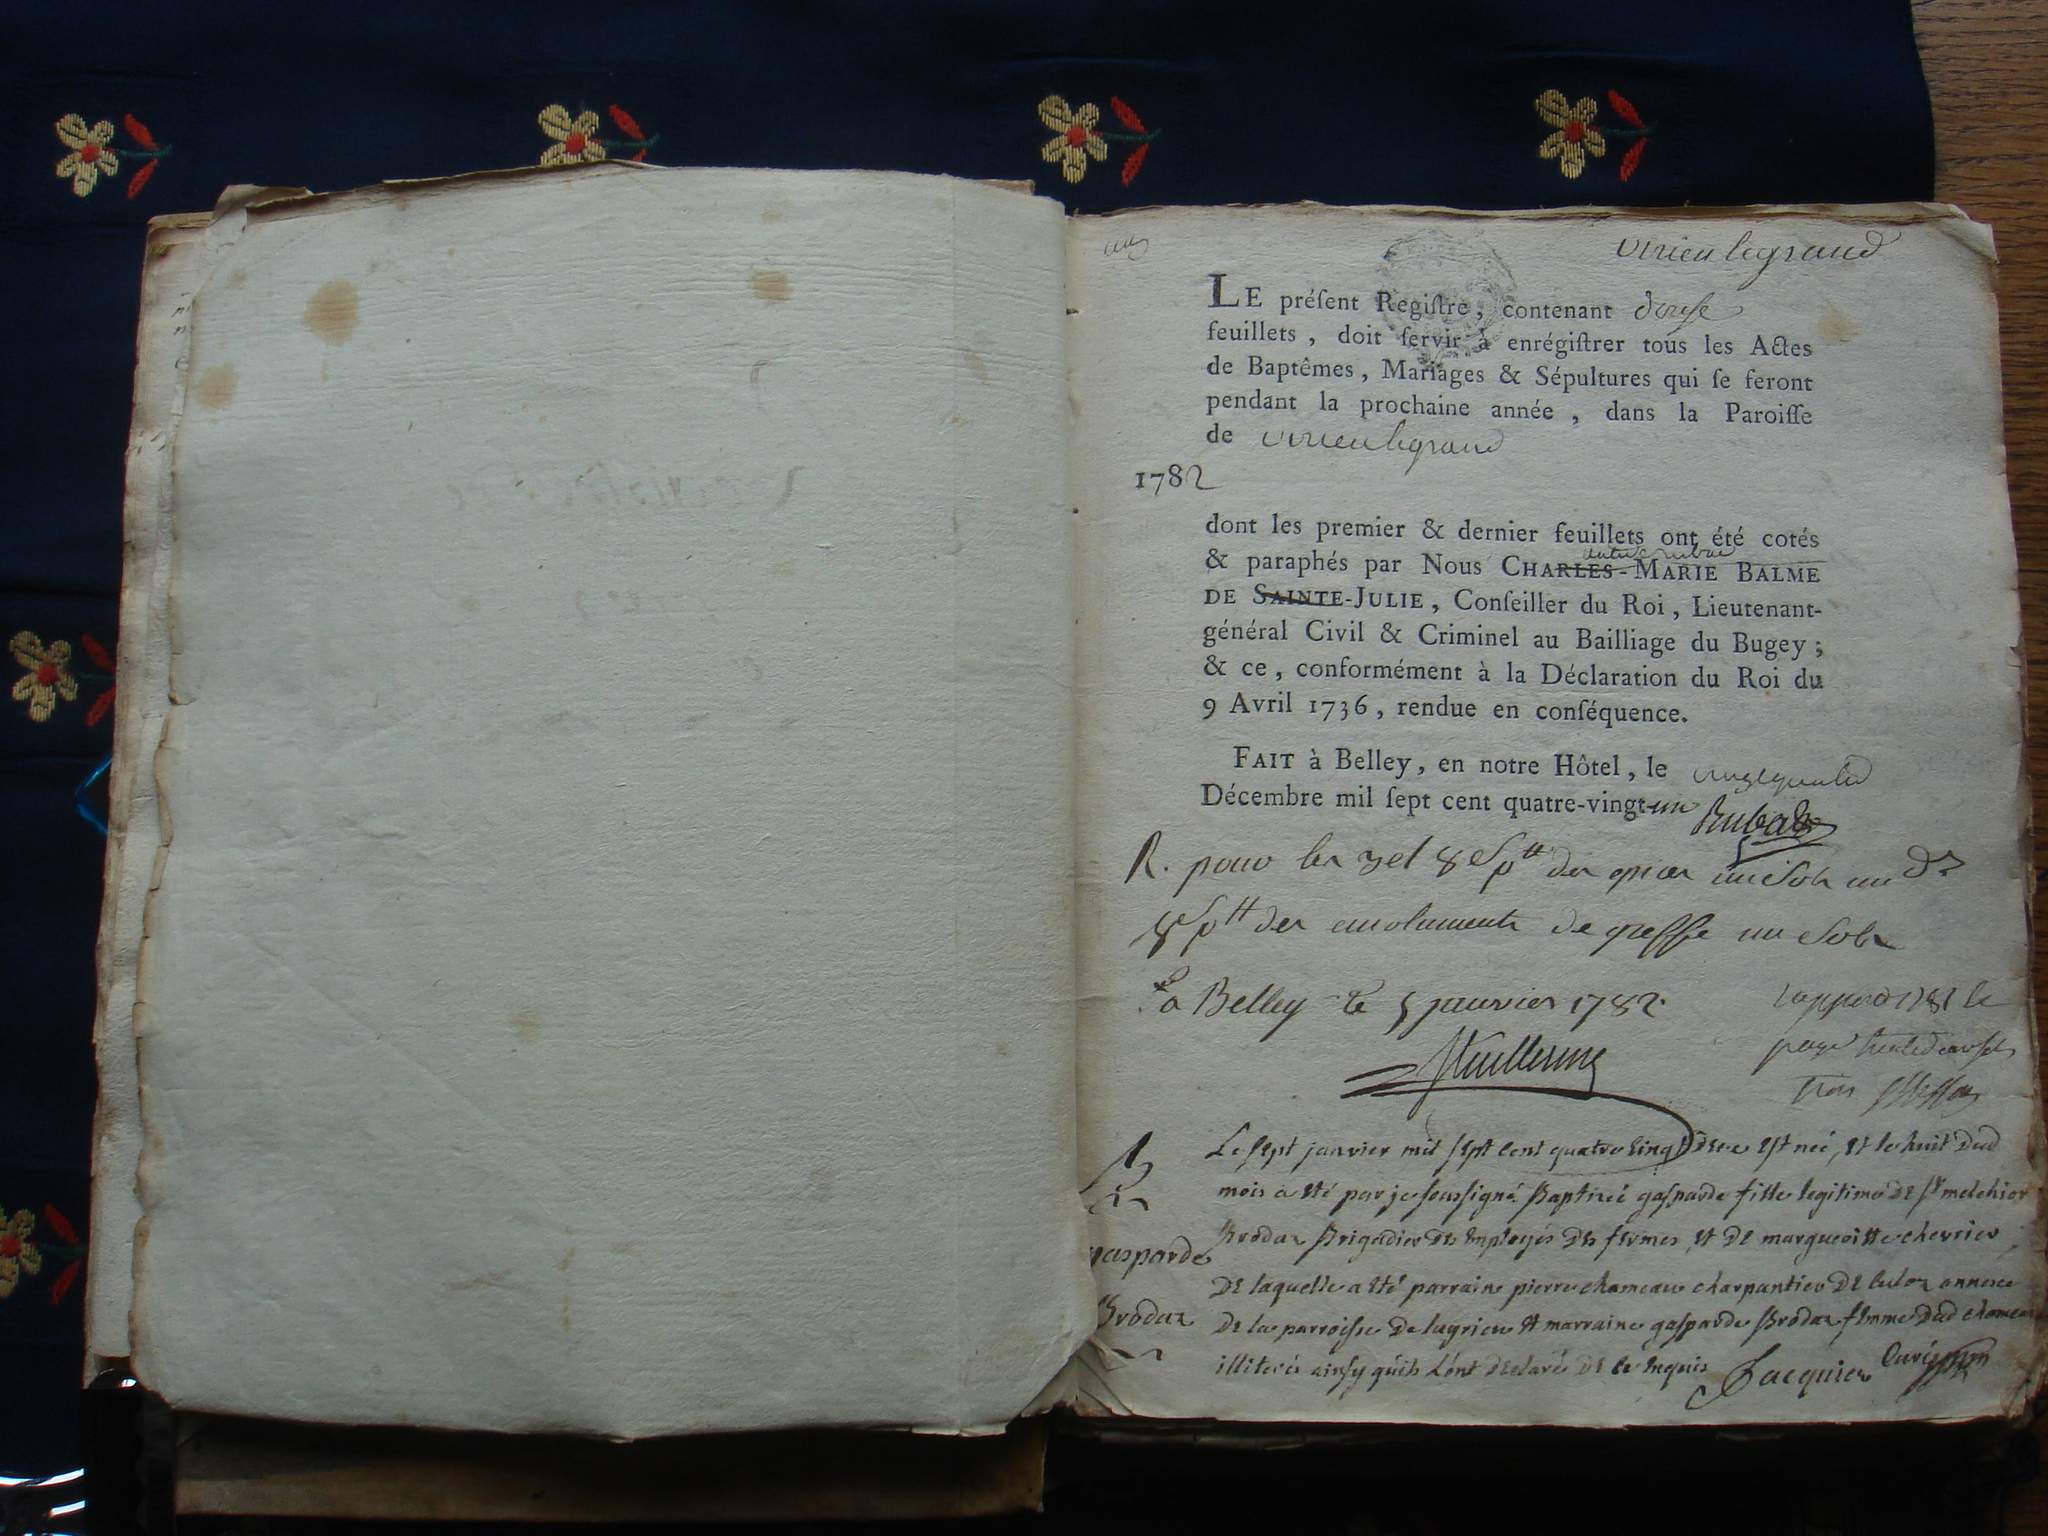 virieu legrand
LE préſent Regiſtre, contenant douſe
feuillets, doit ſervir à enrégiſtrer tous les Actes
de Baptêmes, Mariages & Sépultures qui ſe feront
pendant la prochaine année, dans la Paroiſſe
de virieu legrand
1782
dont les premier & dernier feuillets ont été cotés
& paraphés par Nous CHARLES-MARIE BALME
DE SAINTE-JULIE, Conſeiller du Roi, Lieutenant-
général Civil & Criminel au Bailliage du Bugey;
& ce, conformément à la Déclaration du Roi du
9 Avril 1736, rendue en conſéquence.
FAIT à Belley, en notre Hôtel, le
Décembre mil ſept cent quatre-vingt-un
Rubat
R. pour les 3 et 8 s p tt des epices un sols un dr
8 s p tt des emoluments de greffe un sols
a Belley le 5 janvier 1782
Guillerme
Le sept janvier mil sept cent quatre vingt deux est née, et le huit dud
mois a été par je soussigné Baptisée gasparde fille legitime de sr melchior
Brodaz Brigadier des employés des fermes, et de margueritte chevrier
de laquelle a été parrain pierre chameau charpantier de culoz annexe
de la parroisse de lagrieu et marraine gasparde Brodaz femme dud chameau
illiterés ainsy qu'ils l'ont declaré de ce requis Jacquier Curé
gasparde
Brodaz